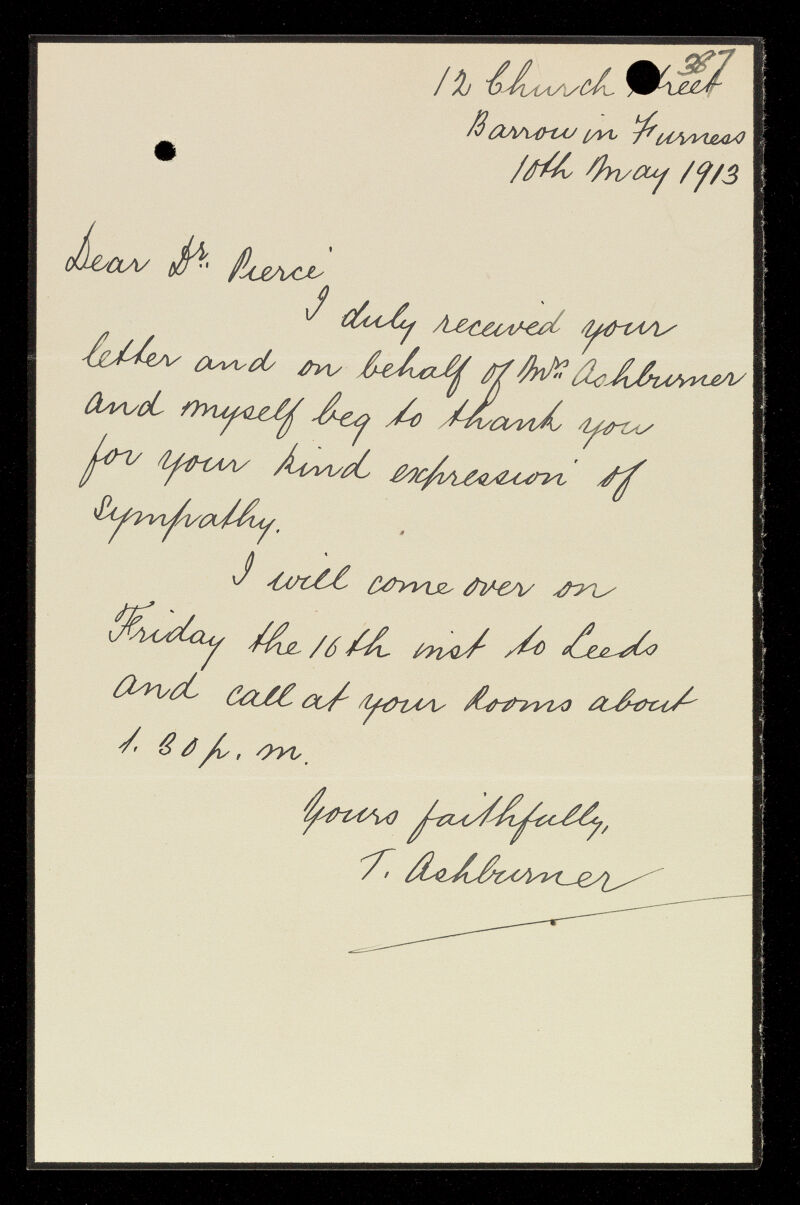 387
12 Church Street
Barrow in Furness
10th May 1913
Dear Dr. Pierce
I duly received your
letter and on behalf of Mrs. Ashburner
and myself beg to thank you
for your kind expression of
sympathy.
I will come over on
Friday the 16th inst to Leeds
and call at your Rooms about
1. 30 p. m.
Yours faithfully,
T. Ashburner